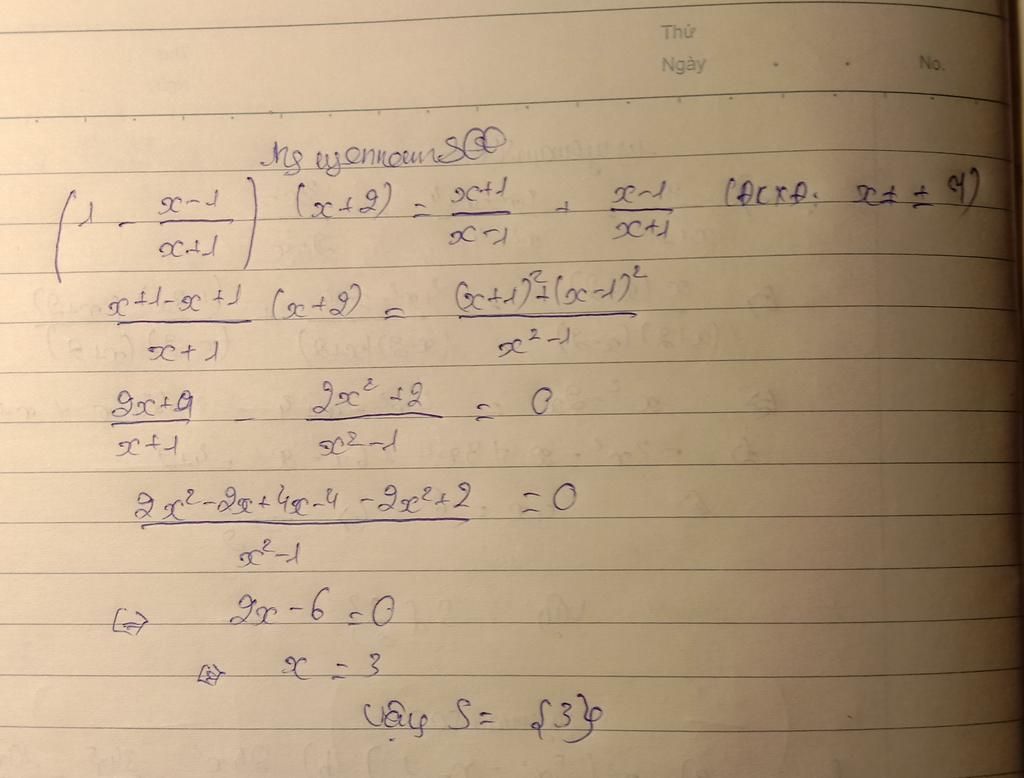 Thứ
Ngày . . No.
(1 - \frac{x-1}{x+1}) (x+2) = \frac{x+1}{x-1} + \frac{x-1}{x+1} (ĐKXĐ: x ≠ ± 1)
\frac{x+1-x+1}{x+1} (x+2) = \frac{(x+1)^2+(x-1)^2}{x^2-1}
\frac{2x+4}{x+1} - \frac{2x^2+2}{x^2-1} = 0
\frac{2x^2-2x+4x-4-2x^2+2}{x^2-1} = 0
⇔ 2x-6 = 0
⇔ x = 3
Vậy S = {3}